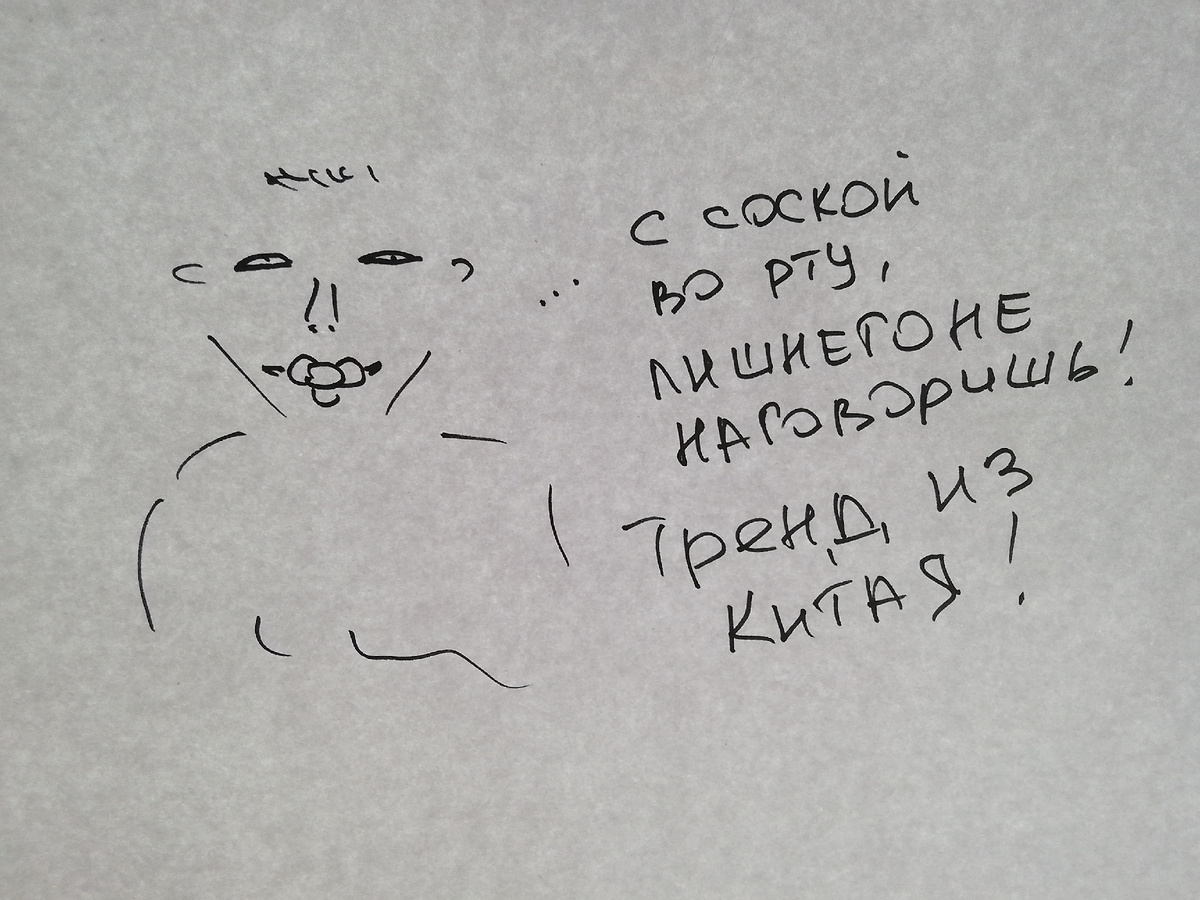 ... с соской
во рту,
лишнего не
наговоришь!
Тренд из
Китая!